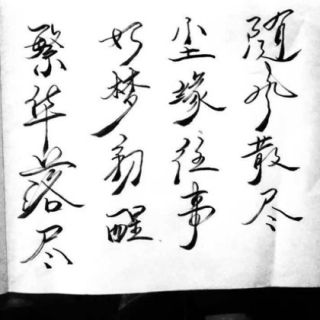 繁华落尽
如梦初醒
尘缘往事
随风散尽